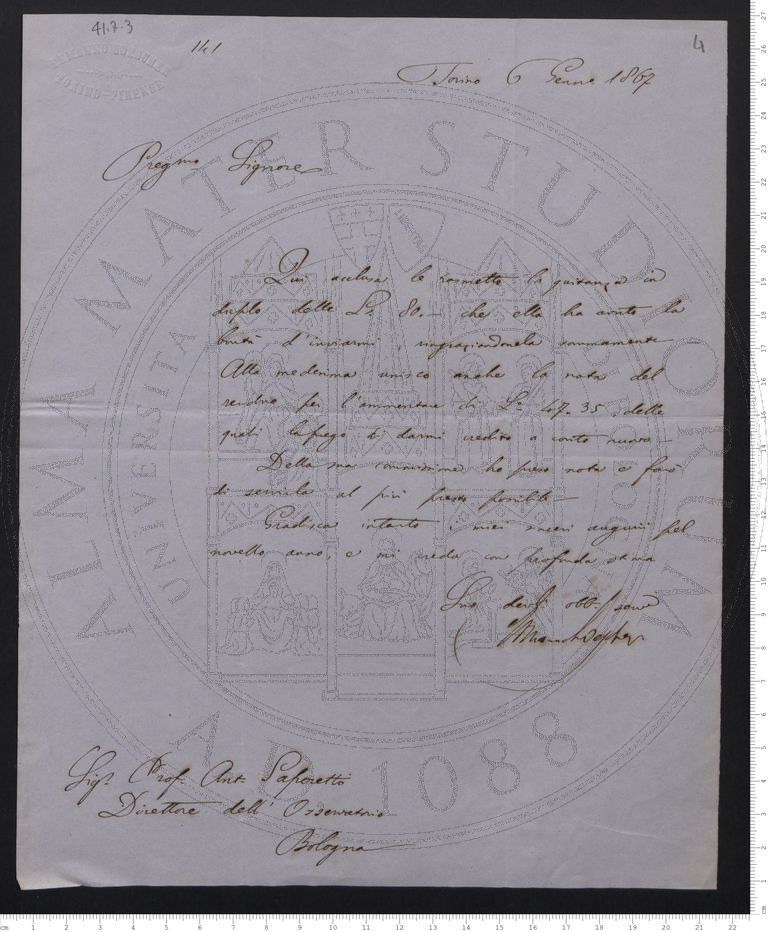 41.7-3
141
4
Torino 6 Genn. 1867
Pregmo Signore
Qui acclusa le rimetto la quitanza in
duplo delle L. 80.— che ella ha avuto la
bontà d'inviarmi, ringraziandonela sommamente
Alla medesima unisco anche la nota del
per l'ammontare di L. 47.35 delle
quali la prego di darmi credito a conto nuovo —
Della sua commissione ho preso nota e farò
di servirla al più presto possibile —
Gradisca intanto i miei sinceri auguri pel
novello anno, e mi creda con profonda stima
Suo
Sigr Prof. Ant.
Direttore dell' Osservatorio
Bologna
ALMA MATER STUDIORUM
UNIVERSITA DI BOLOGNA
LIBERTAS
A.D. 1088